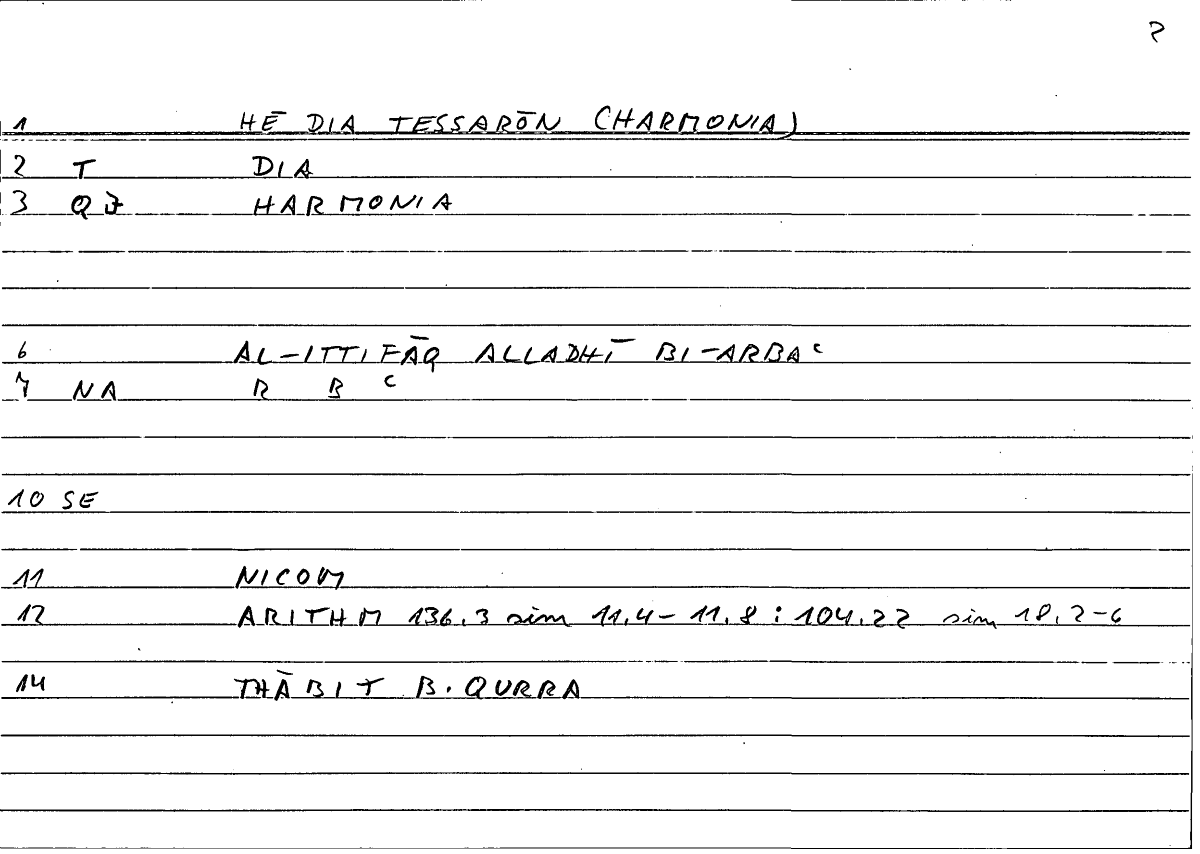 2
1 HĒ DIA TESSARŌN (HARMONIA)
2 T DIA
3 QJ HARMONIA
6 AL-ITTIFĀQ ALLADHĪ BI-ARBAᶜ
7 NA R B ᶜ
10 SE
11 NICOM
12 ARITHM 136.3 sim 11.4-11.8 : 104.22 sim 18.2-6
14 THĀBIT B. QURRA